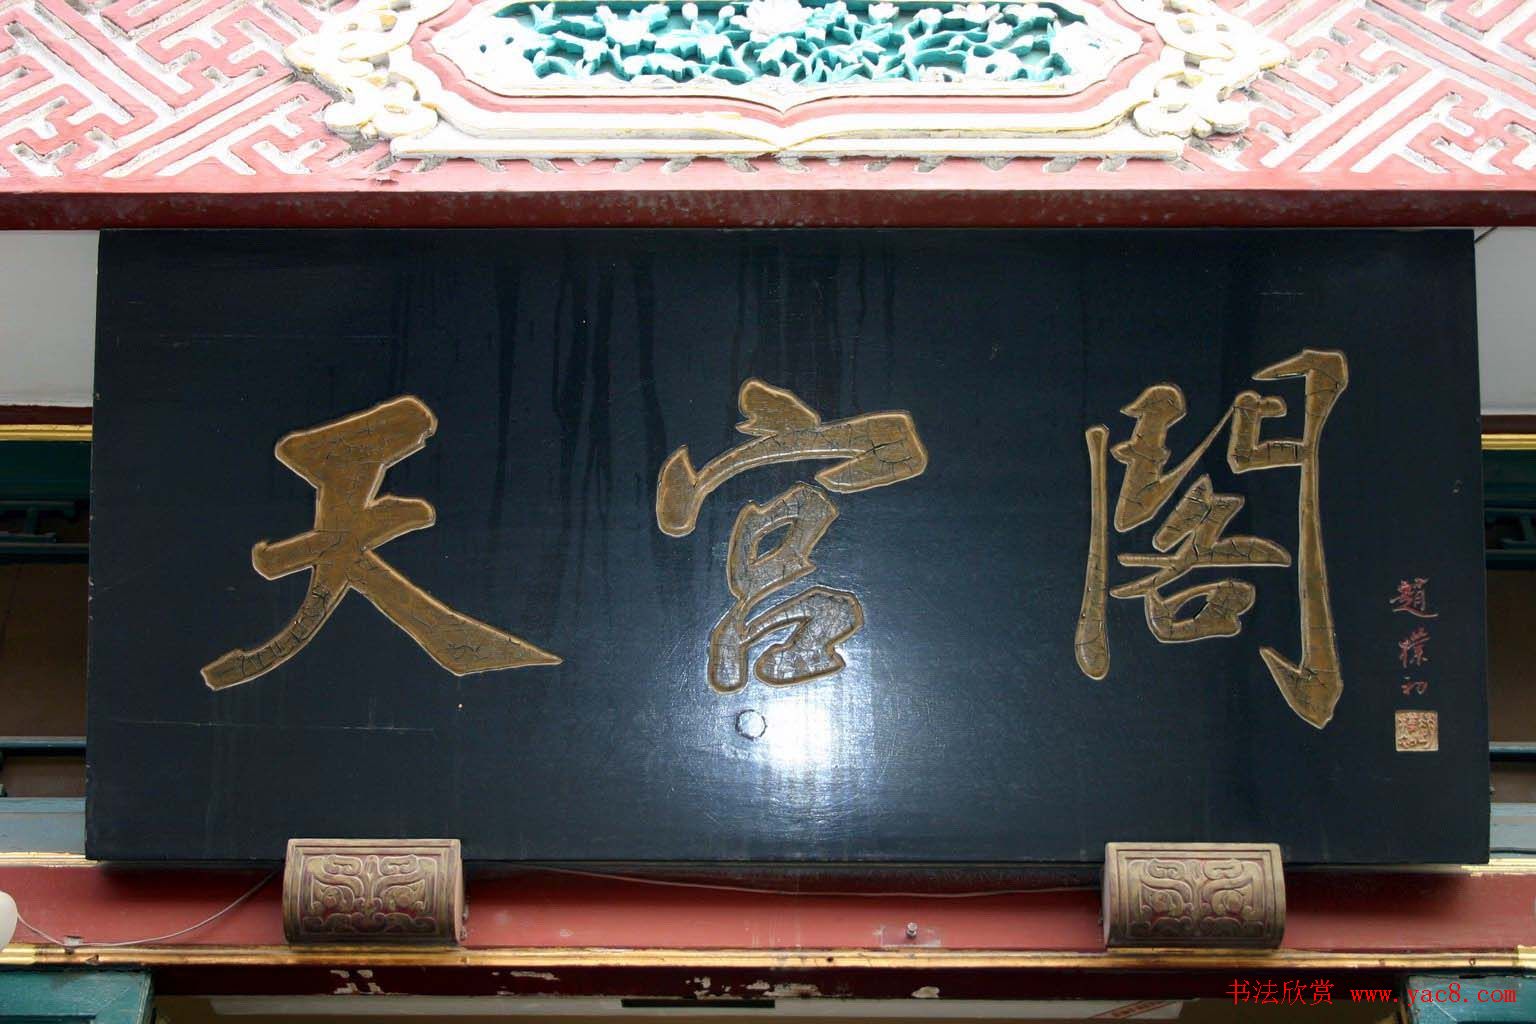 天宫閣
趙樸初
书法欣赏 www.yac8.com